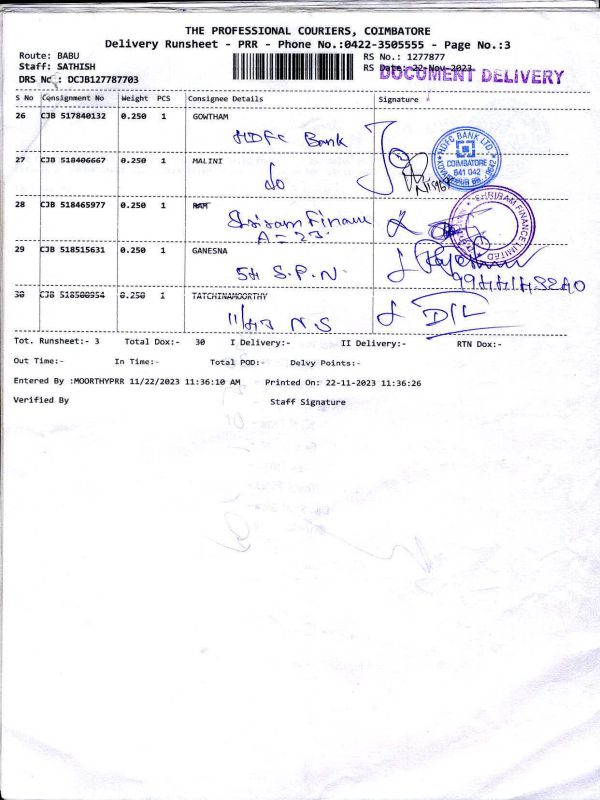 THE PROFESSIONAL COURIERS, COIMBATORE
Delivery Runsheet - PRR - Phone No.:0422-3505555 - Page No.:3
Route: BABU
RS No.: 1277877
Staff: SATHISH
RS Date: 22-Nov-2023
DOCUMENT DELIVERY
DRS No.: DCJB127787703
S No Consignment No Weight PCS Consignee Details Signature
26 CJB 517840132 0.250 1 GOWTHAM
HDFC Bank
HDFC BANK LTD.
COIMBATORE
641 042
27 CJB 518406667 0.250 1 MALINI
do
28 CJB 518465977 0.250 1 RAM
Shriram Finance
A-23
SHRIRAM FINANCE LIMITED
29 CJB 518515631 0.250 1 GANESNA
54 S.P.N.
30 CJB 518500954 0.250 1 TATCHINAMOORTHY
11/43 N.S
D/L
Tot. Runsheet:- 3 Total Dox:- 30 I Delivery:- II Delivery:- RTN Dox:-
Out Time:- In Time:- Total POD:- Delvy Points:-
Entered By :MOORTHYPRR 11/22/2023 11:36:10 AM Printed On: 22-11-2023 11:36:26
Verified By Staff Signature